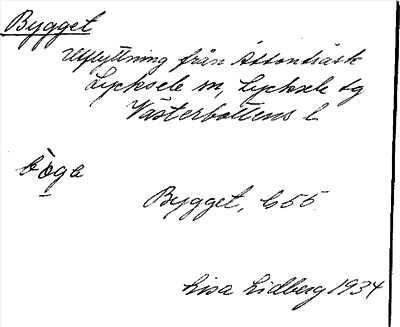 Bygget
Utflyttning från Åttonträsk
Lycksele sn, Lycksele tg
Västerbottens l
Bygget, 655.
Lisa Lidberg 1934